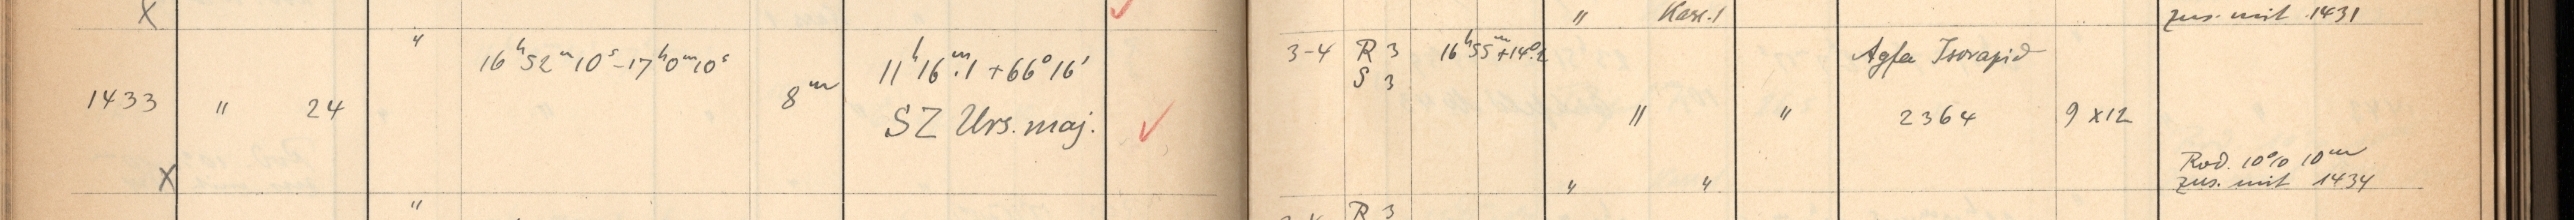 X ✓ " Kass. 1 zus. mit 1431
" 16ʰ52ᵐ10ˢ-17ʰ0ᵐ10ˢ 11ʰ16ᵐ.1 +66°16' 3-4 R 3 16ʰ55ᵐ+14°.2 Agfa Isorapid
S 3
1433 " 24 8ᵐ SZ Urs. maj. ✓ " " 2364 9x12
Rod. 10% 10ᵐ
X " " zus. mit 1434
" R 3